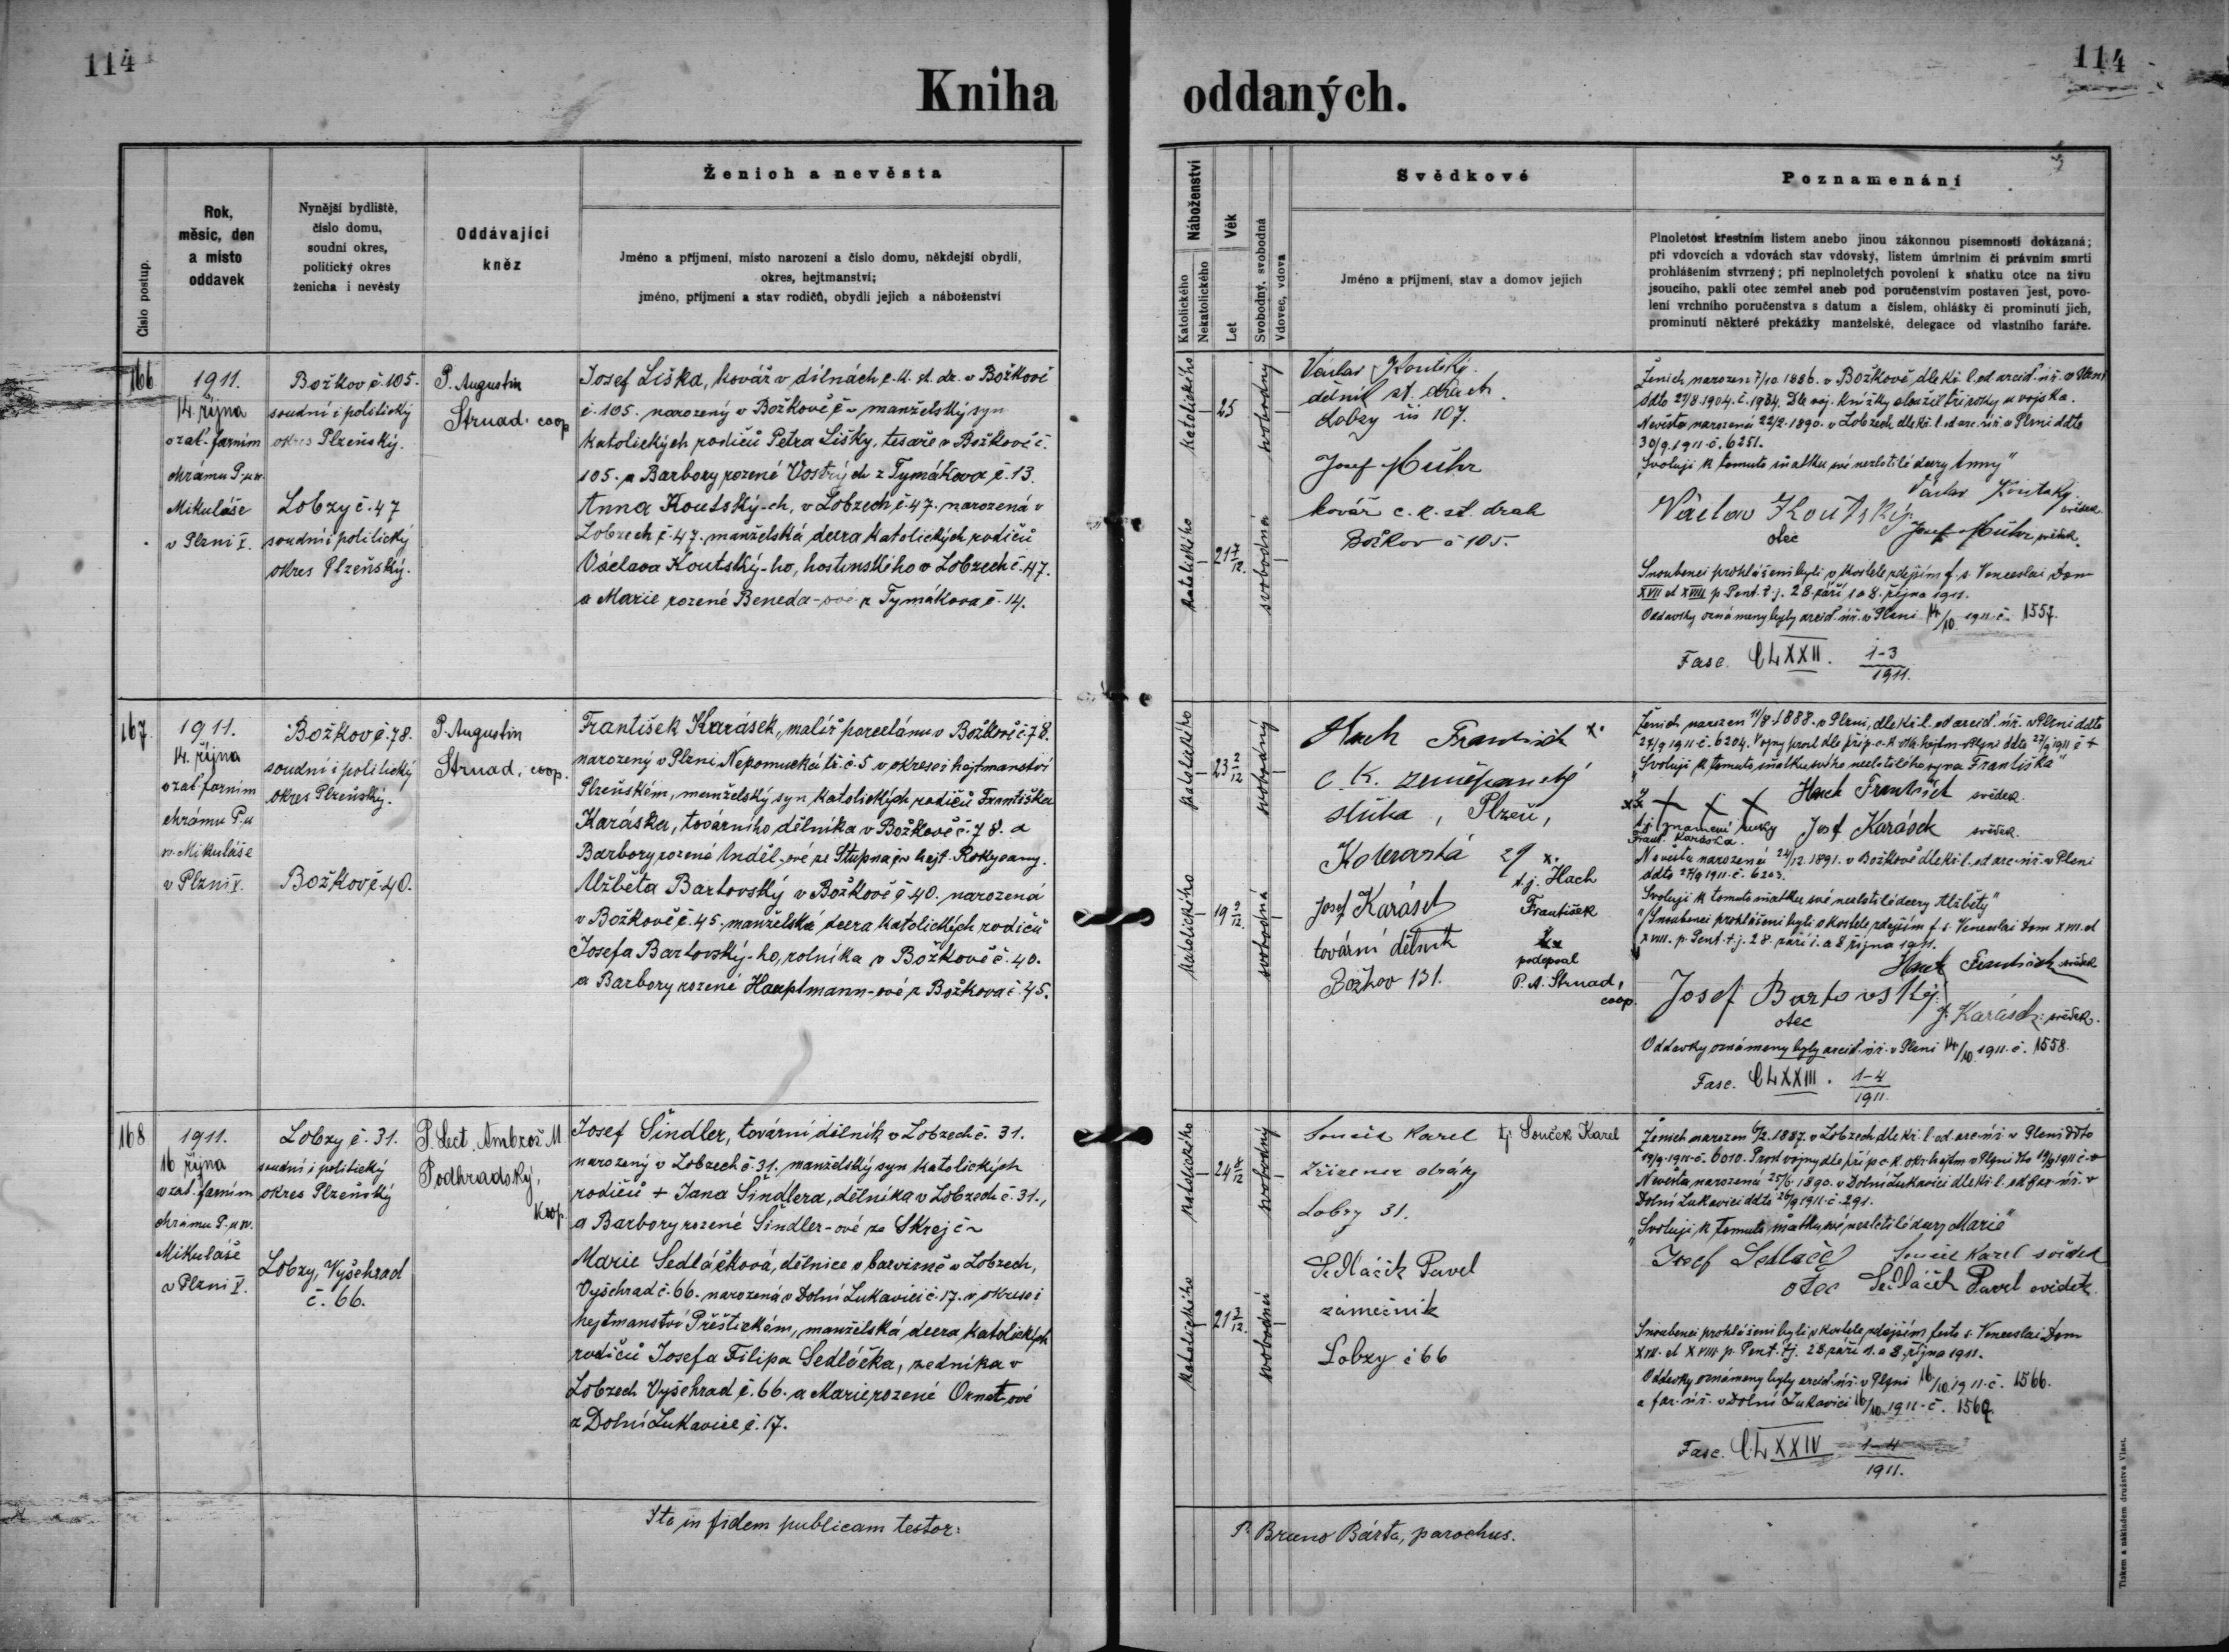 114
114
Kniha oddaných.
Číslo postup.
Rok,
měsíc, den
a místo
oddavek
Nynější bydliště,
číslo domu,
soudní okres,
politický okres
ženicha i nevěsty
Oddávající
kněz
Ženich a nevěsta
Jméno a příjmení, místo narození a číslo domu, někdejší obydlí,
okres, hejtmanství;
jméno, příjmení a stav rodičů, obydlí jejich a náboženství
Náboženství
Katolického
Nekatolického
Věk
Let
Svobodný, svobodná
Vdovec, vdova
Svědkové
Jméno a příjmení, stav a domov jejich
Poznamenání
Plnoletost křestním listem anebo jinou zákonnou písemností dokázaná;
při vdovcích a vdovách stav vdovský, listem úmrtním či právním smrti
prohlášením stvrzený; při neplnoletých povolení k sňatku otce na živu
jsoucího, pakli otec zemřel aneb pod poručenstvím postaven jest, povo-
lení vrchního poručenstva s datum a číslem, ohlášky či prominutí jich,
prominutí některé překážky manželské, delegace od vlastního faráře.
166
1911.
14. října
v zat. farním
chrámu P. u sv.
Mikuláše
v Plzni V.
Božkov č. 105.
soudní i politický
okres Plzeňský.
Lobzy č. 47
soudní i politický
okres Plzeňský.
P. Augustin
Strnad, coop
Josef Liška, kovář v dílnách c. k. st. dr. v Božkově
č. 105. narozený v Božkově č ~ manželský syn
katolických rodičů Petra Lišky, tesaře v Božkově č.
105. a Barbory rozené Vostrý-ch z Tymákova č. 13.
Anna Koutský-ch, v Lobzech č. 47. narozená v
Lobzech č. 47. manželská dcera katolických rodičů
Václava Koutský-ho, hostinského v Lobzech č. 47.
a Marie rozené Beneda-ové z Tymákova č. 14.
katolického
25
svobodný
katolického
21 7/12.
svobodná
Václav Koutský
dělník st. drách
Lobzy čís 107.
Josef Mühr
kovář c. k. st. drah
Božkov č 105.
Ženich narozen 7/10. 1886. v Božkově, dle kř. l. od arciď. úř. v Plzni
ddto 27/8. 1904. č. 1984. Dle voj. knížky sloužil tři roky u vojska.
Nevěsta narozená 22/2. 1890. v Lobzech dle kř. l. od arc. úř. v Plzni ddto
30/9. 1911 č. 6251.
"Svoluji k tomuto sňatku své nezletilé dcery Anny"
Václav Koutský
svědek.
Václav Koutský
otec
Josef Mühr svědek.
Snoubenci prohlášeni byli v kostele zdejším f. s. Venceslai Dom
XVII et XVIII p. Pent. t. j. 28. září 1 a 8. října 1911.
Oddavky oznámeny byly arciď. úř. v Plzni 14/10. 1911. č. 1557.
Fasc. CLXXII. 1-3
1911.
167.
1911.
14. října
v zat. farním
chrámu P. u
sv. Mikuláše
v Plzni V.
Božkov č. 78.
soudní i politický
okres Plzeňský.
Božkov č. 40.
P. Augustin
Strnad, coop.
František Karásek, malíř porcelánu v Božkově č. 78.
narozený v Plzni Nepomucká tř. č. 5 v okrese i hejtmanství
Plzeňském, manželský syn katolických rodičů Františka
Karáska, továrního dělníka v Božkově č. 78. a
Barbory rozené Anděl-ové ze Stupna, v hejt. Rokycany.
Alžběta Bartovský v Božkově č 40. narozená
v Božkově č. 45. manželská dcera katolických rodičů
Josefa Bartovský-ho, rolníka v Božkově č. 40.
a Barbory rozené Hauptmann-ové z Božkova č. 45.
katolického
23 2/12
svobodný
katolického
19 9/12.
svobodná
Hach František x.
c. k. zeměpanský
sluha, Plzeň,
Koterovská 29
x.
t. j. Hach
František
Josef Karásek
tovární dělník
Božkov 131.
podepsal
P. A. Strnad,
coop.
Ženich narozen 11/8. 1888. v Plzni, dle kř. l. od arciď. úř. v Plzni ddto
"Svoluji k tomuto sňatku svého nezletilého syna Františka"
Hach František svědek.
X X X
t. j. znamení ruky
Frant. Karáska.
Josef Karásek svědek.
Nevěsta narozená 24/12. 1891. v Božkově dle kř. l. od arc. úř. v Plzni
ddto 27/9 1911. č. 6203.
Svoluji k tomuto sňatku své nezletilé dcery Alžběty"
Snoubenci prohlášeni byli v kostele zdejším f. s. Venceslai Dom XVII. et
XVIII. p. Pent. t. j. 28. září 1. a 8 října 1911.
Hach František svědek
Josef Bartovský
otec
J. Karásek svědek.
Oddavky oznámeny byly arciď. úř. v Plzni 14/10. 1911. č. 1558.
Fasc. CLXXIII. 1-4
1911.
168
1911.
16 října
v zat. farním
chrámu P. u sv.
Mikuláše
v Plzni V.
Lobzy č. 31.
soudní i politický
okres Plzeňský
Lobzy, Vyšehrad
č. 66.
P. Lect. Ambrož M
Podhradský,
koop.
Josef Šindler, tovární dělník v Lobzech č. 31.
narozený v Lobzech č. 31. manželský syn katolických
rodičů + Jana Šindlera, dělníka v Lobzech č. 31.,
a Barbory rozené Šindler-ové ze Skrej č ~
Marie Sedláčková, dělnice v barvírně v Lobzech,
Vyšehrad č. 66. narozená v Dolní Lukavici č. 17. v okrese i
hejtmanství Přeštickém, manželská dcera katolických
rodičů Josefa Filipa Sedláčka, zedníka v
Lobzech Vyšehrad č. 66. a Marie rozené Ornst-ové
z Dolní Lukavice č. 17.
katolického
24 8/12
svobodný
katolického
21 3/12.
svobodná
Souček Karel tj. Souček Karel
zřízenec dráhy
Lobzy 31.
Sedláček Pavel
zámečník
Lobzy č 66
Nevěsta narozená 25/6. 1890. v Dolní Lukavici dle kř. l. od far. úř. v
Dolní Lukavici ddto 26/9 1911. č. 291.
"Svoluji k tomuto sňatku své nezletilé dcery Marie"
Josef Sedláček
otec
Souček Karel svědek
Sedláček Pavel svědek
Snoubenci prohlášeni byli v kostele zdejším festo s. Venceslai Dom
XVII. et XVIII p. Pent. tj. 28. září 1. a 8. října 1911.
Oddavky oznámeny byly arciď. úř. v Plzni 16/10. 1911. č. 1566.
a far. úř. v Dolní Lukavici 16/10. 1911. č. 1567.
Fasc. CLXXIV 1-4
1911.
Ita in fidem publicam testor:
P. Bruno Bárta, parochus.
Tiskem a nákladem družstva Vlast.